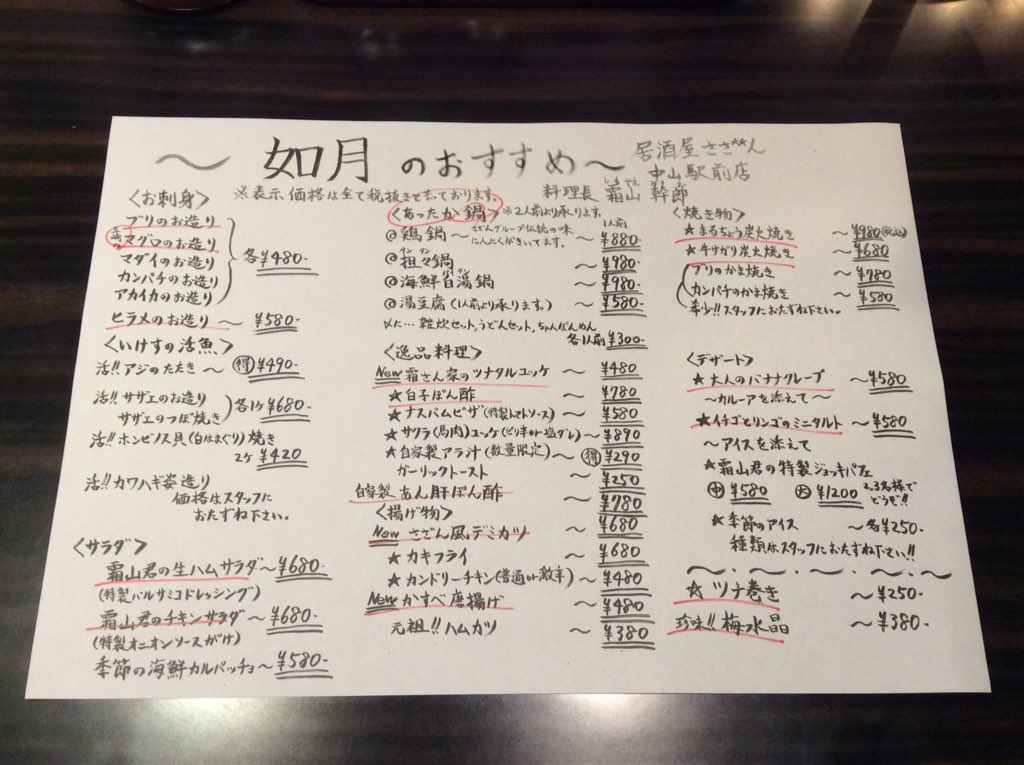 ～ 如月 のおすすめ～
居酒屋ささ"ん
中山駅前店
※表示価格は全て税抜きと
なっております。
料理長 霜山 幹節
<お刺身>
ブリのお造り
マグロのお造り
マダイのお造り
カンパチのお造り
アカイカのお造り
各¥480-
ヒラメのお造り ～ ¥580-
<いけすの活魚>
活!! アジのたたき ～ 得 ¥490-
活!! サザエのお造り
サザエのつぼ焼き
各1ケ¥680-
活!! ホンビノス貝(白はまぐり)焼き
2ケ ¥420
活!! カワハギ姿造り
価格はスタッフに
おたずね下さい。
<サラダ>
霜山君の生ハムサラダ～¥680-
(特製バルサミコドレッシング)
霜山君のチキンサラダ～¥680-
(特製オニオンソースがけ)
季節の海鮮カルパッチョ～¥580-
<あったか鍋> ※2人前より承ります。
1人前
@鶏鍋～ さざんグループ伝統の味
にんにくがきいてます。
¥880-
@担々鍋 ～¥980-
@海鮮白湯鍋 ～¥980-
@湯豆腐(1人前より承ります。) ～¥580-
〆に…雑炊セット,うどんセット,ちゃんぽんめん
各1人前 ¥300-
<逸品料理>
New 霜さん家のツナタルユッケ ～ ¥480
★白子ぽん酢 ～ ¥780
★ナスパムピザ(特製トマトソース) ～ ¥580
★サクラ(馬肉)ユッケ(ピリ辛or塩ダレ)～ ¥890
★自家製アラ汁(数量限定) ～ 得 ¥290
ガーリックトースト ～ ¥250
自家製 あん肝ぽん酢 ～ ¥780
<揚げ物>
New さざん風デミカツ ～ ¥680
★カキフライ ～ ¥680
★カンドリーチキン(普通or激辛) ～ ¥480
New かすべ唐揚げ ～ ¥480
元祖!! ハムカツ ～ ¥380
<焼き物>
★まるちょう炭火焼き ～¥980(税込)
★牛サガリ炭火焼き ～¥680
ブリのかま焼き ～¥780
カンパチのかま焼き ～ ¥580
希少!! スタッフにおたずね下さい。
<デザート>
★大人のバナナクレープ ～¥580
～カルーアを添えて～
★イチゴとリンゴのミニタルト ～¥580
～アイスを添えて
★霜山君の特製ジョッキパフェ
中 ¥580 大 ¥1200 2,3名様で
どうぞ!!
★季節のアイス ～各¥250-
種類はスタッフにおたずね下さい!!
～・～・～・～・～
★ ツナ巻き ～¥250-
珍味!! 梅水晶 ～¥380-